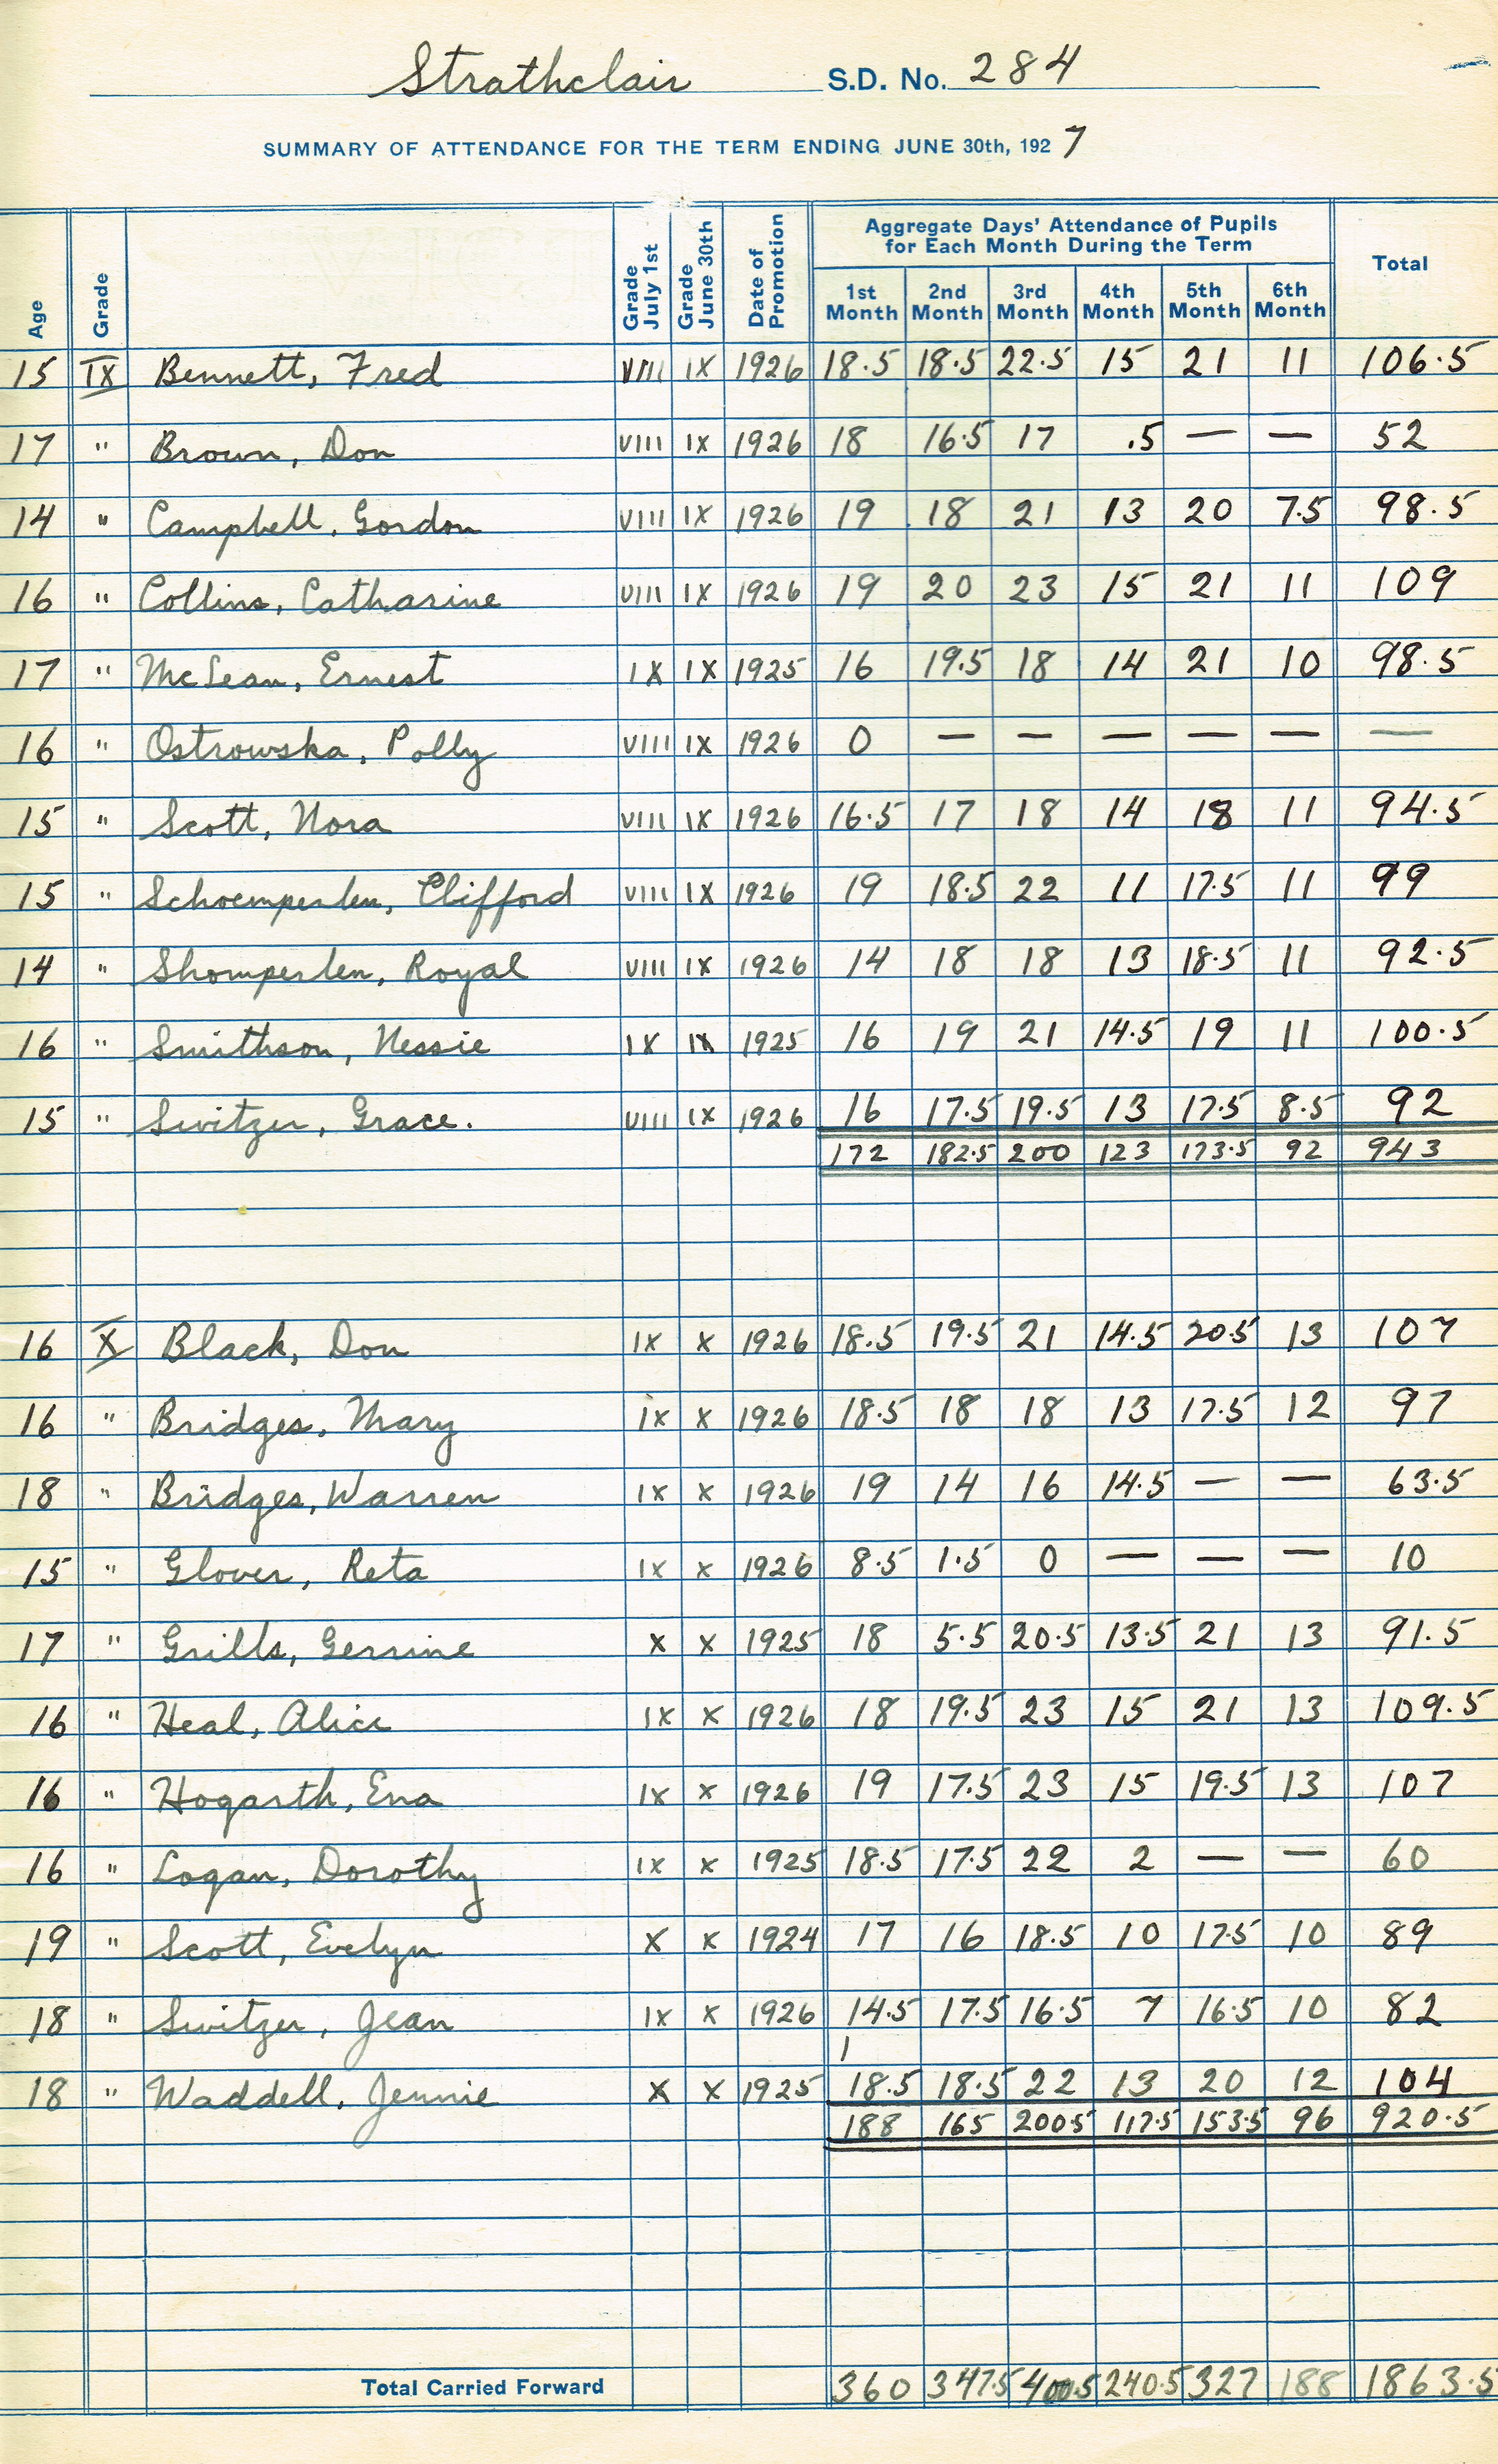 Strathclair S.D. No. 284
SUMMARY OF ATTENDANCE FOR THE TERM ENDING JUNE 30th, 1927
Age Grade Grade July 1st Grade June 30th Date of Promotion Aggregate Days' Attendance of Pupils for Each Month During the Term Total
1st Month 2nd Month 3rd Month 4th Month 5th Month 6th Month
15 IX Bennett, Fred VIII IX 1926 18.5 18.5 22.5 15 21 11 106.5
17 " Brown, Don VIII IX 1926 18 16.5 17 .5 — — 52
14 " Campbell, Gordon VIII IX 1926 19 18 21 13 20 7.5 98.5
16 " Collins, Catharine VIII IX 1926 19 20 23 15 21 11 109
17 " McLean, Ernest IX IX 1925 16 19.5 18 14 21 10 98.5
16 " Ostrowska, Polly VIII IX 1926 0 — — — — — —
15 " Scott, Nora VIII IX 1926 16.5 17 18 14 18 11 94.5
15 " Schoemperlen, Clifford VIII IX 1926 19 18.5 22 11 17.5 11 99
14 " Shomperlen, Royal VIII IX 1926 14 18 18 13 18.5 11 92.5
16 " Smithson, Nessie IX IX 1925 16 19 21 14.5 19 11 100.5
15 " Switzer, Grace. VIII IX 1926 16 17.5 19.5 13 17.5 8.5 92
172 182.5 200 123 173.5 92 943
16 X Black, Don IX X 1926 18.5 19.5 21 14.5 20.5 13 107
16 " Bridges, Mary IX X 1926 18.5 18 18 13 17.5 12 97
18 " Bridges, Warren IX X 1926 19 14 16 14.5 — — 63.5
15 " Glover, Reta IX X 1926 8.5 1.5 0 — — — 10
17 " Grills, Gerrine X X 1925 18 5.5 20.5 13.5 21 13 91.5
16 " Heal, Alice IX X 1926 18 19.5 23 15 21 13 109.5
16 " Hogarth, Ena IX X 1926 19 17.5 23 15 19.5 13 107
16 " Logan, Dorothy IX X 1925 18.5 17.5 22 2 — — 60
19 " Scott, Evelyn X X 1924 17 16 18.5 10 17.5 10 89
18 " Switzer, Jean IX X 1926 14.5 17.5 16.5 7 16.5 10 82
1
18 " Waddell, Jennie X X 1925 18.5 18.5 22 13 20 12 104
188 165 200.5 117.5 153.5 96 920.5
Total Carried Forward 360 347.5 400.5 240.5 327 188 1863.5